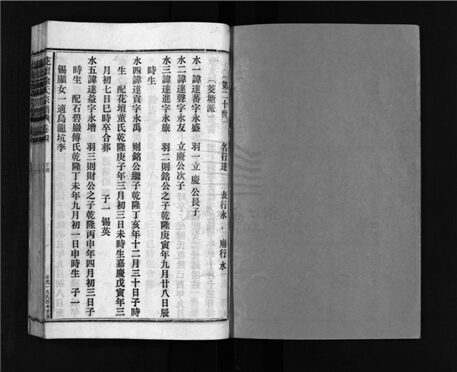 第二十世 名行達 表行水 廟行水
菱塘派
水一諱達蕃字永盛 羽一立慶公長子
水二諱達聲字永友 立慶公次子
水三諱達進字永旅 羽二則銘公之子乾隆庚寅年九月廿八日辰
時生
水四諱達貢字永禹 則銘公繼子乾隆丁亥年十二月三十日子時
生 配花墳董氏乾隆庚子年三月初三日未時生嘉慶戊寅年三
月初七日巳時卒合葬 子一 錫英
水五諱達益字永增 羽三則財公之子乾隆丙申年四月初三日子
時生 配石碧巖傅氏乾隆丁未年九月初一日申時生 子一
錫顯女一適烏龍坑李